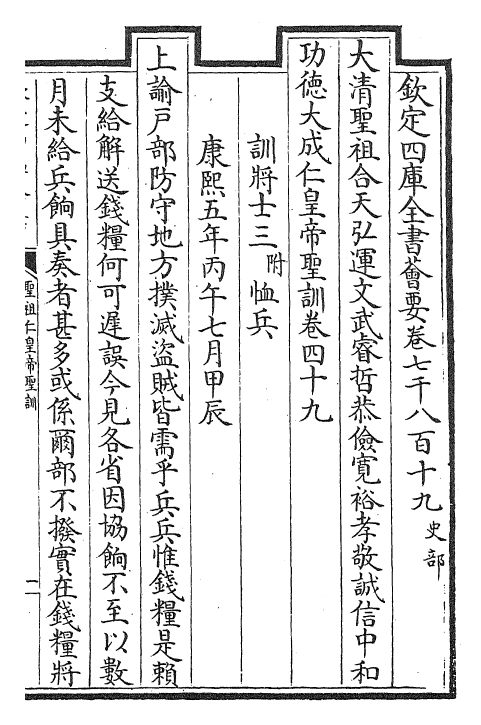 欽定四庫全書薈要卷七千八百十九 史部
大清聖祖合天弘運文武睿哲恭儉寛裕孝敬誠信中和
功德大成仁皇帝聖訓卷四十九
訓將士三 附 恤兵
康熙五年丙午七月甲辰
上諭戸部防守地方撲滅盜賊皆需乎兵兵惟錢糧是賴
支給解送錢糧何可遲誤今見各省因協餉不至以數
月未給兵餉具奏者甚多或係爾部不撥實在錢糧將
聖祖仁皇帝聖訓